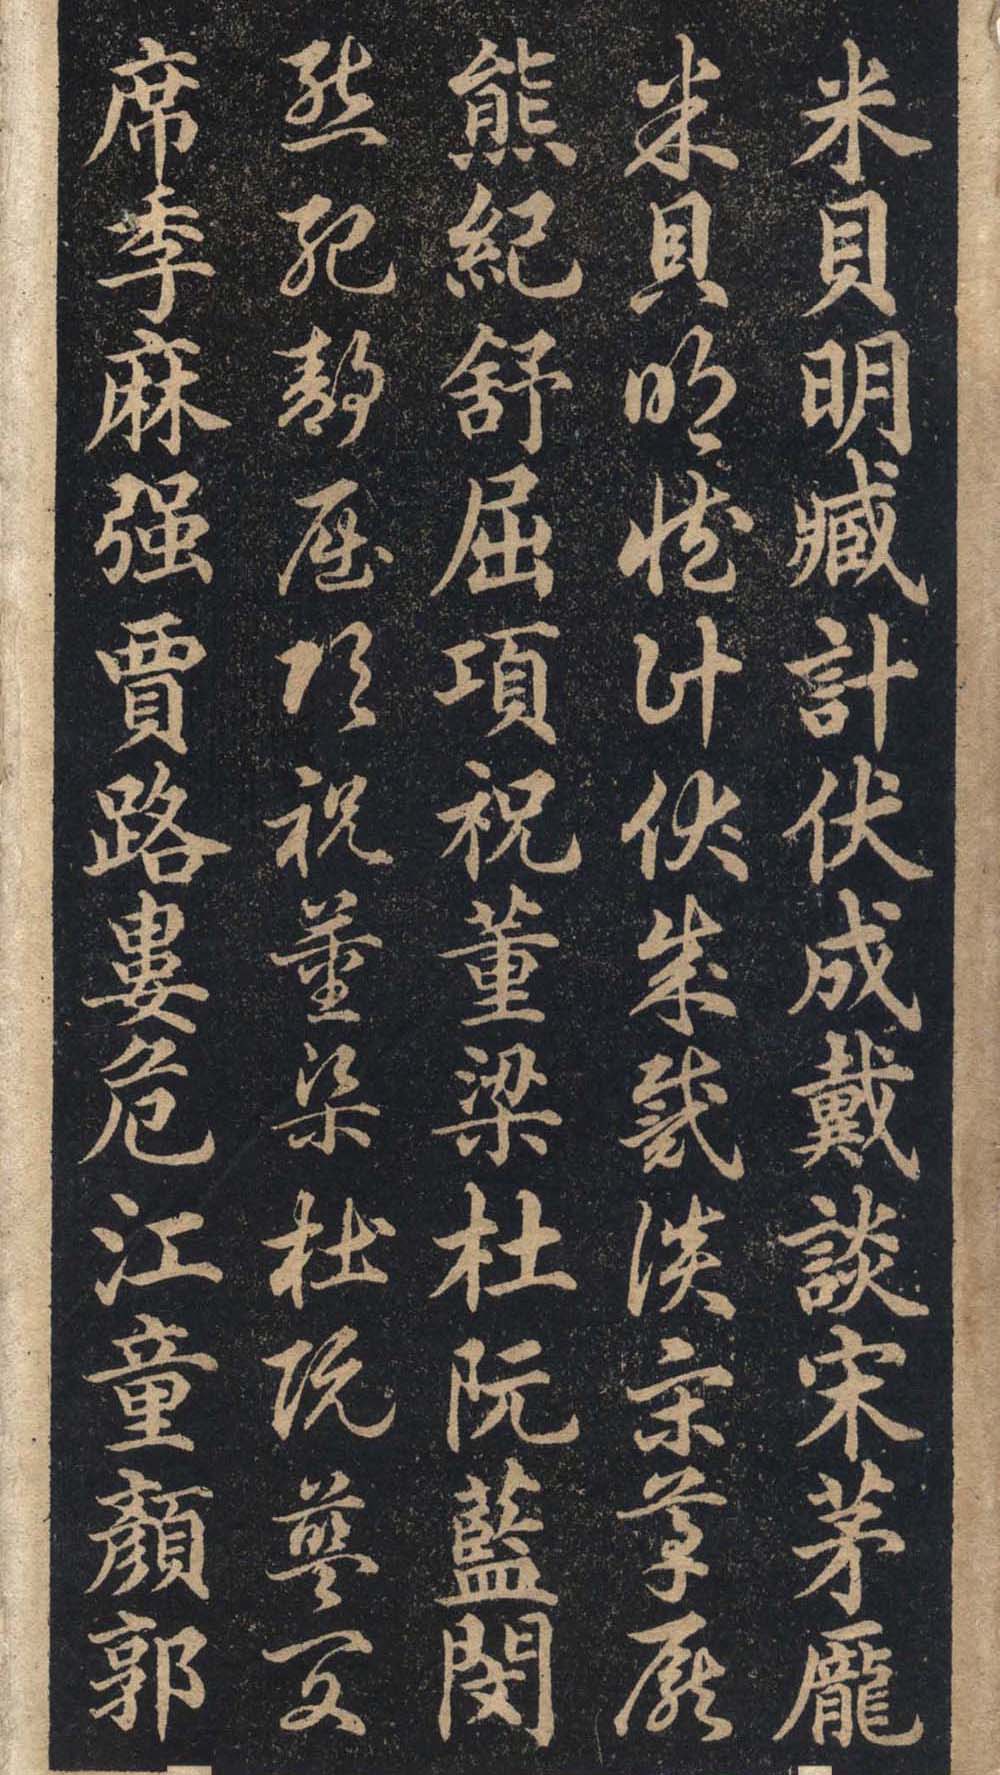 米貝明臧計伏成戴談宋茅龐
米貝明臧計伏成戴談宋茅龐
熊紀舒屈項祝董梁杜阮藍閔
熊紀舒屈項祝董梁杜阮藍閔
席季麻强賈路婁危江童顏郭